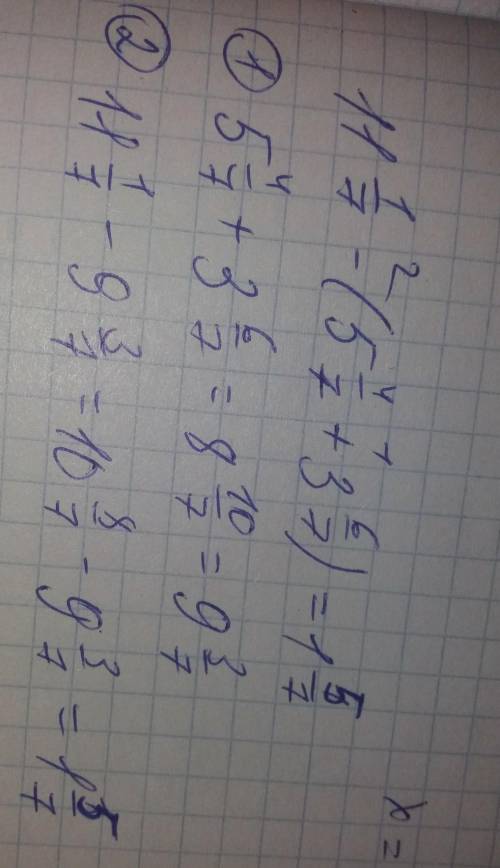 11 1/7 - (5 4/7 + 3 6/7) = 1 5/7
2 1
① 5 4/7 + 3 6/7 = 8 10/7 = 9 3/7
② 11 1/7 - 9 3/7 = 10 8/7 - 9 3/7 = 1 5/7